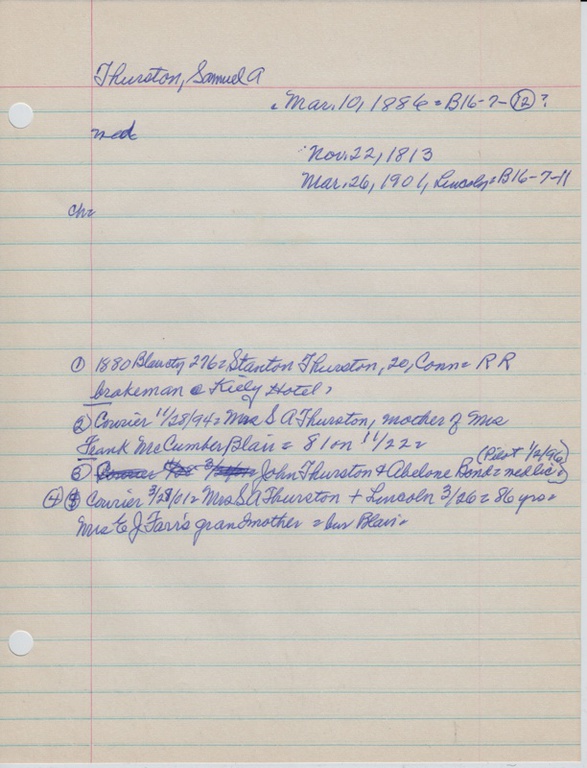 Thurston, Samuel A
Mar. 10, 1886 = B16-7-12 ?
med
Nov. 22, 1813
Mar. 26, 1901, Lincoln = B16-7-11
ch=
① 1880 Blair cty 276 = Stanton Thurston, 20, Conn = R R
brakeman @ Kiely Hotel,
② Courier 11/28/94 = Mrs S A Thurston, mother of Mrs
Frank McCumber, Blair = 81 on 11/22 =
(Pilot 1/2/96)
③ John Thurston & Abelone Bond = med lic=
④ Courier 3/28/01 = Mrs S A Thurston + Lincoln 3/26 = 86 yrs =
Mrs E J Farr's grandmother = bur Blair =